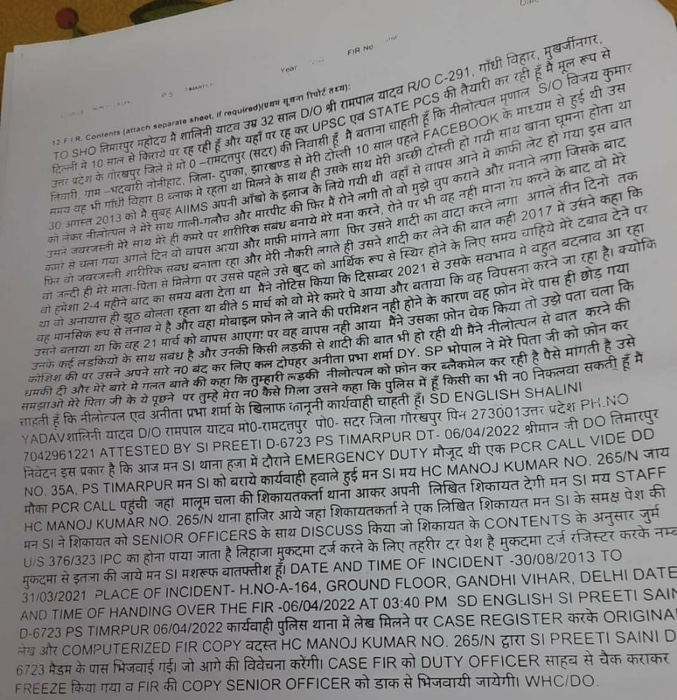 Year
FIR No
P.S
12 F.I.R. Contents (attach separate sheet, if required)(प्रथम सूचना रिपोर्ट तथ्य):
TO SHO तिमारपुर महोदय मै शालिनी यादव उम्र 32 साल D/O श्री रामपाल यादव R/O C-291, गाँधी विहार, मुखर्जीनगर,
दिल्ली मे 10 साल से किराये पर रह रही हूँ और यहाँ पर रह कर UPSC एवं STATE PCS की तैयारी कर रही हूँ मै मूल रूप से
उत्तर प्रदेश के गोरखपुर जिले मे मो 0 –रामदत्तपुर (सदर) की निवासी हूँ मै बताना चाहती हूँ कि नीलोत्पल मृणाल S/O विजय कुमार
तिवारी, ग्राम –भदवारी नोनीहाट, जिला- दुमका, झारखण्ड से मेरी दोस्ती 10 साल पहले FACEBOOK के माध्यम से हुई थी उस
समय वह भी गाँधी विहार B ब्लाक मे रहता था मिलने के साथ ही उसके साथ मेरी अच्छी दोस्ती हो गयी साथ खाना घूमना होता था
30 अगस्त 2013 को मै सुबह AIIMS अपनी आँखो के इलाज के लिये गयी थी वहाँ से वापस आने मे काफी लेट हो गया इस बात
को लेकर नीलोत्पल ने मेरे साथ गाली-गलौच और मारपीट की फिर मै रोने लगी तो वो मुझे चुप कराने और मनाने लगा जिसके बाद
उसने जबरजस्ती मेरे साथ मेरे ही कमरे पर शारीरिक संबध बनाये मेरे मना करने, रोने पर भी वह नही माना रेप करने के बाद वो मेरे
कमरे से चला गया अगले दिन वो वापस आया और माफी मांगने लगा फिर उसने शादी का वादा करने लगा अगले तीन दिनो तक
फिर वो जबरजस्ती शारीरिक सबध बनाता रहा और मेरी नौकरी लगते ही उसने शादी कर लेने की बात कही 2017 मे उसने कहा कि
वो जल्दी ही मेरे माता-पिता से मिलेगा पर उससे पहले उसे खुद को आर्थिक रूप से स्थिर होने के लिए समय चाहिये मेरे दबाव देने पर
वो हमेशा 2-4 महीने बाद का समय बता देता था मैने नोटिस किया कि दिसम्बर 2021 से उसके सवभाव मे बहुत बदलाव आ रहा
था वो अनायास ही झूठ बोलता रहता था बीते 5 मार्च को वो मेरे कमरे पे आया और बताया कि वह विपसना करने जा रहा है। क्योकि
वह मानसिक रूप से तनाव मे है और वहा मोबाइल फ़ोन ले जाने की परमिशन नही होने के कारण वह फ़ोन मेरे पास ही छोड़ गया
उसने बताया था कि वह 21 मार्च को वापस आएगा पर वह वापस नही आया मैने उसका फ़ोन चेक किया तो उझे पता चला कि
उनके कई लडकियो के साथ संबध है और उनकी किसी लडकी से शादी की बात भी हो रही थी मैने नीलोत्पल से बात करने की
कोशिश की पर उसने अपने सारे न0 बंद कर लिए कल दोपहर अनीता प्रभा शर्मा DY. SP भोपाल ने मेरे पिता जी को फ़ोन कर
धमकी दी और मेरे बारे मे गलत बाते की कहा कि तुम्हारी लडकी नीलोत्पल को फ़ोन कर ब्लैकमेल कर रही है पैसे मागती है उसे
समझाओ मेरे पिता जी के ये पूछने पर तुम्हे मेरा न0 कैसे मिला उसने कहा कि पुलिस में हूँ किसी का भी न0 निकलवा सकती हूँ मै
चाहती हूँ कि नीलोत्पल एवं अनीता प्रभा शर्मा के खिलाफ कानूनी कार्यवाही चाहती हूँ। SD ENGLISH SHALINI
YADAV शालिनी यादव D/O रामपाल यादव मो0-रामदत्तपुर पो0- सदर जिला गोरखपुर पिन 273001उत्तर प्रदेश PH.NO
7042961221 ATTESTED BY SI PREETI D-6723 PS TIMARPUR DT- 06/04/2022 श्रीमान जी DO तिमारपुर
निवेदन इस प्रकार है कि आज मन SI थाना हजा में दौराने EMERGENCY DUTY मौजूद थी एक PCR CALL VIDE DD
NO. 35A, PS TIMARPUR मन SI को बराये कार्यवाही हवाले हुई मन SI मय HC MANOJ KUMAR NO. 265/N जाय
मौका PCR CALL पहुंची जहां मालूम चला की शिकायतकर्ता थाना आकर अपनी लिखित शिकायत देगी मन SI मय STAFF
HC MANOJ KUMAR NO. 265/N थाना हाजिर आये जहां शिकायतकर्ता ने एक लिखित शिकायत मन SI के समक्ष पेश की
मन SI ने शिकायत को SENIOR OFFICERS के साथ DISCUSS किया जो शिकायत के CONTENTS के अनुसार जुर्म
U/S 376/323 IPC का होना पाया जाता है लिहाजा मुकदमा दर्ज करने के लिए तहरीर दर पेश है मुकदमा दर्ज रजिस्टर करके नम्ब
मुकदमा से इतला की जाये मन SI मशरूफ बातफ्तीश हूँ। DATE AND TIME OF INCIDENT -30/08/2013 TO
31/03/2021 PLACE OF INCIDENT- H.NO-A-164, GROUND FLOOR, GANDHI VIHAR, DELHI DATE
AND TIME OF HANDING OVER THE FIR -06/04/2022 AT 03:40 PM SD ENGLISH SI PREETI SAIN
D-6723 PS TIMRPUR 06/04/2022 कार्यवाही पुलिस थाना में लेख मिलने पर CASE REGISTER करके ORIGINA
लेख और COMPUTERIZED FIR COPY बदस्त HC MANOJ KUMAR NO. 265/N द्वारा SI PREETI SAINI D
6723 मैडम के पास भिजवाई गई। जो आगे की विवेचना करेंगी। CASE FIR को DUTY OFFICER साहब से चैक कराकर
FREEZE किया गया व FIR की COPY SENIOR OFFICER को डाक से भिजवायी जायेगी। WHC/DO.